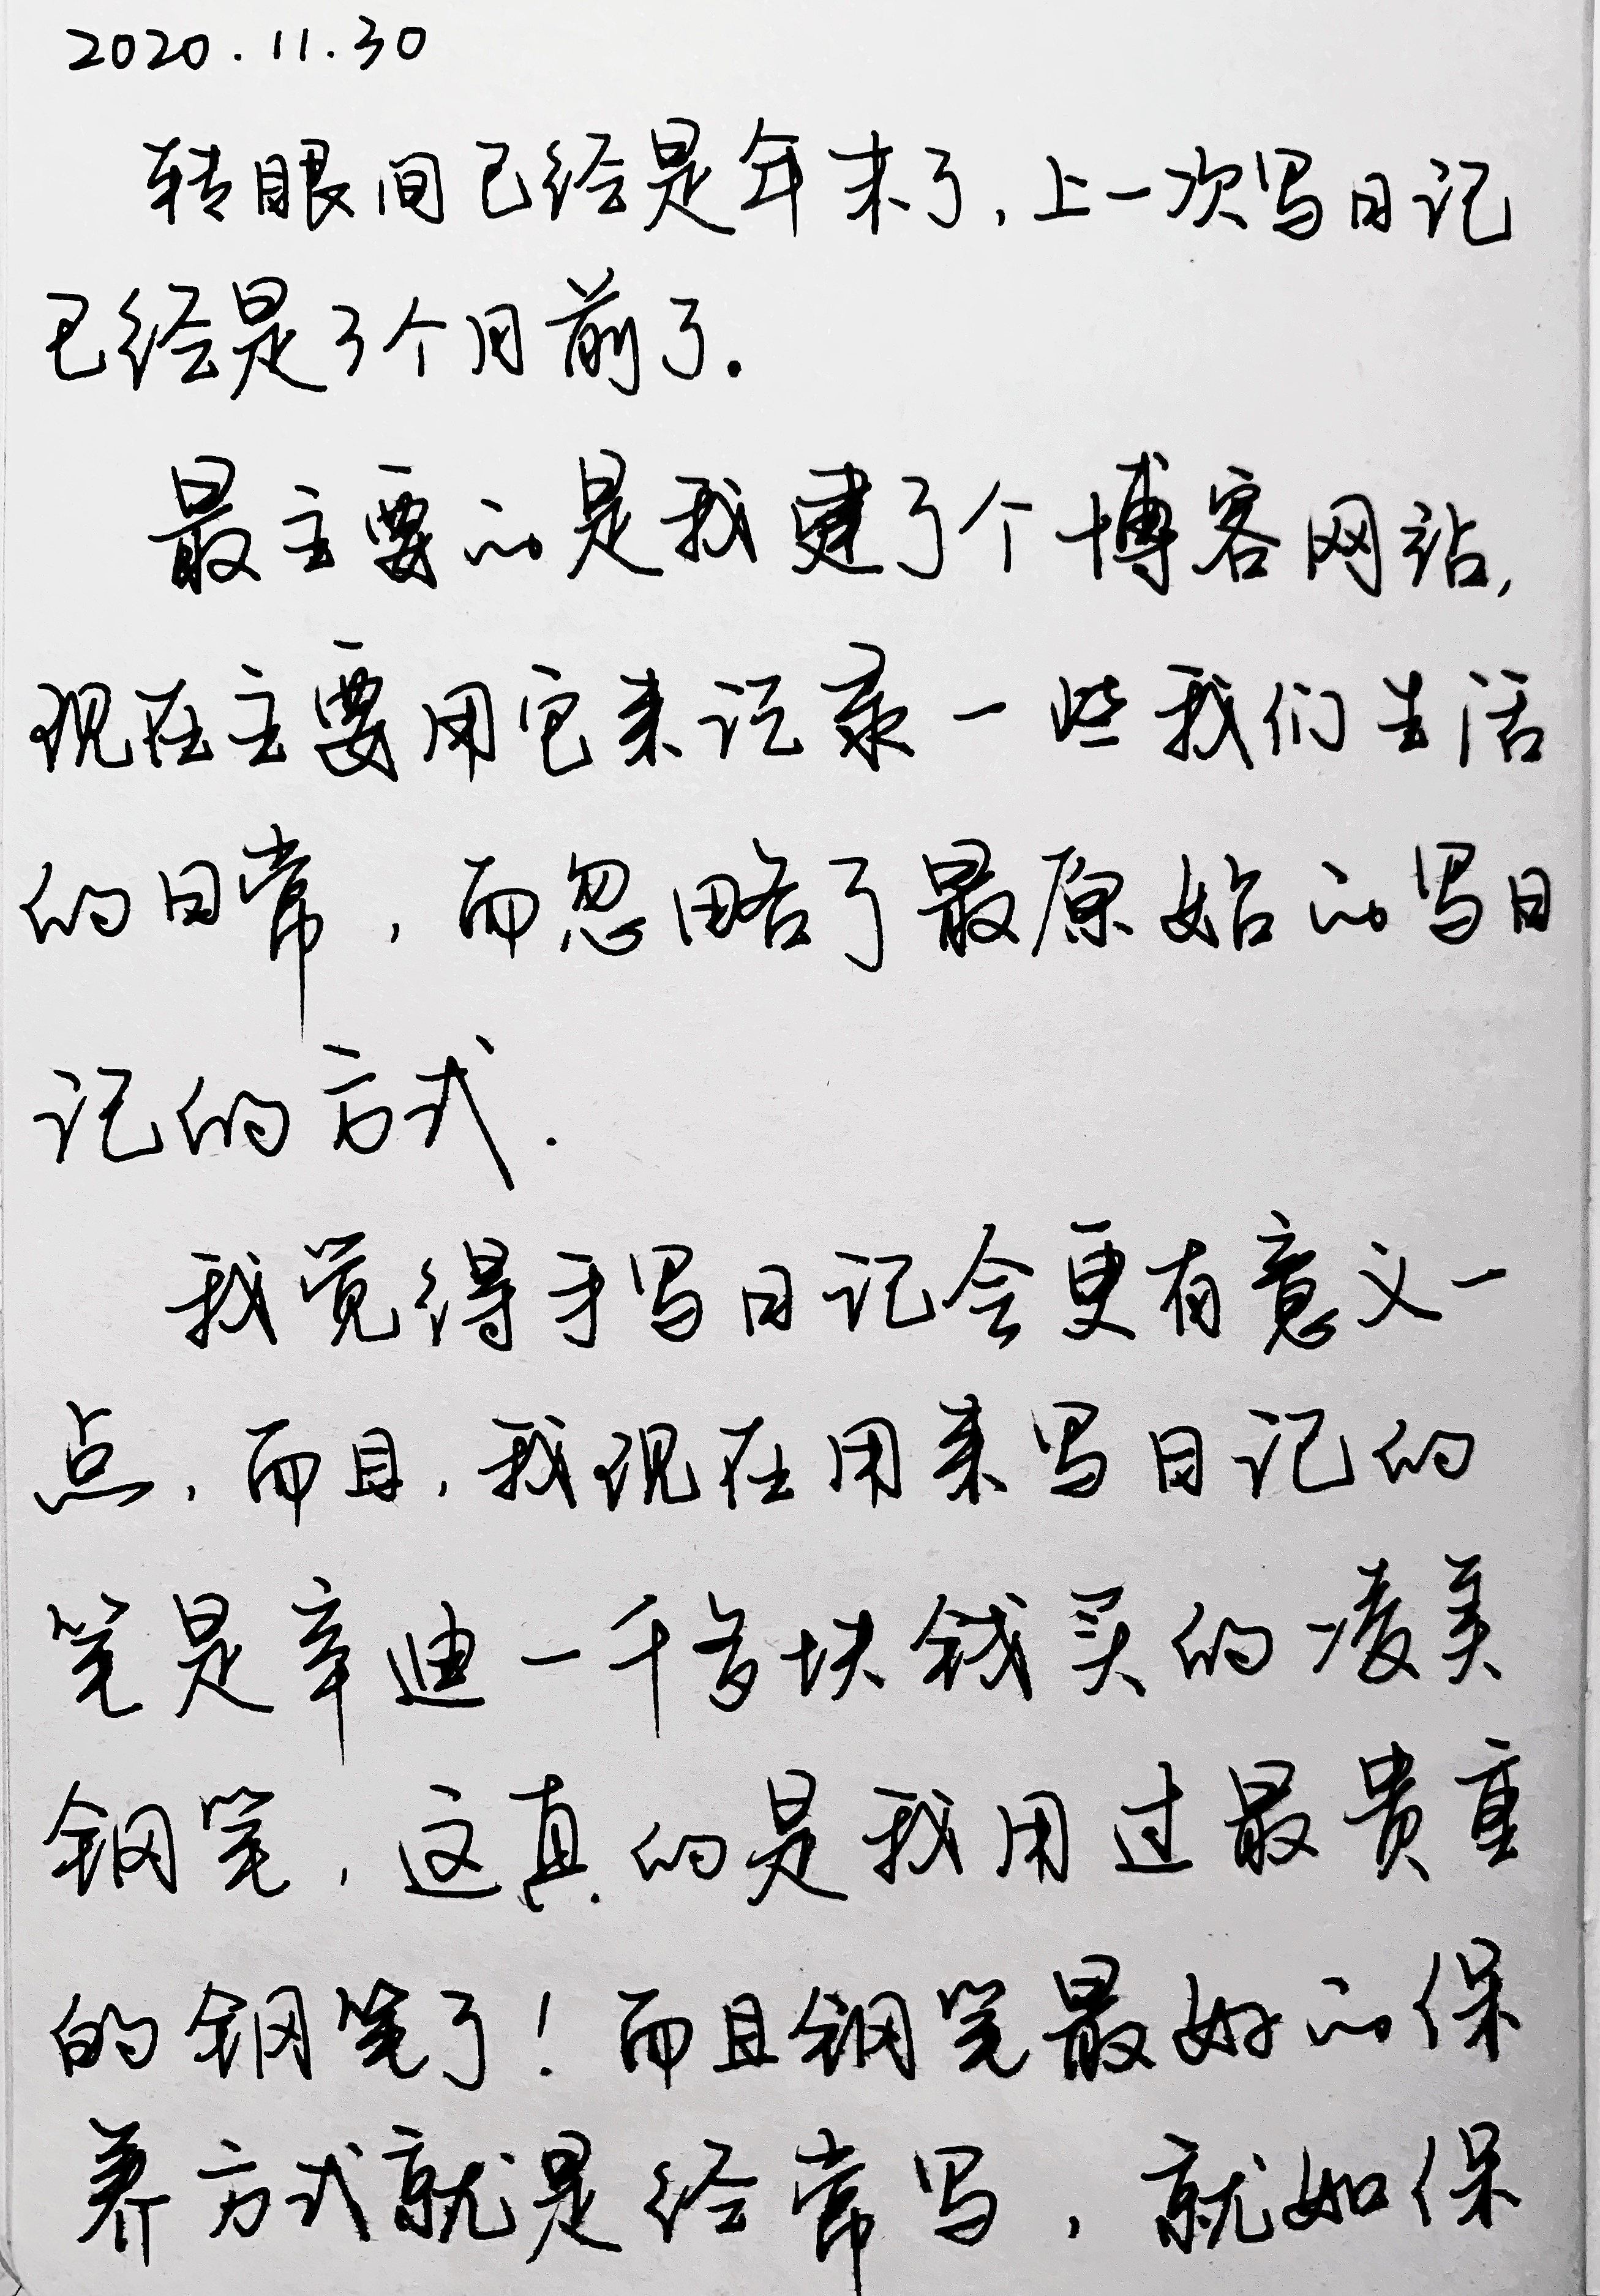 2020.11.30
转眼间已经是年末了,上一次写日记
已经是3个月前了.
最主要的是我建了个博客网站,
现在主要用它来记录一些我们生活
的日常,而忽略了最原始的写日
记的方式.
我觉得手写日记会更有意义一
点,而且,我现在用来写日记的
笔是辛迪一千多块钱买的凌美
钢笔,这真的是我用过最贵重
的钢笔了!而且钢笔最好的保
养方式就是经常写,就如保